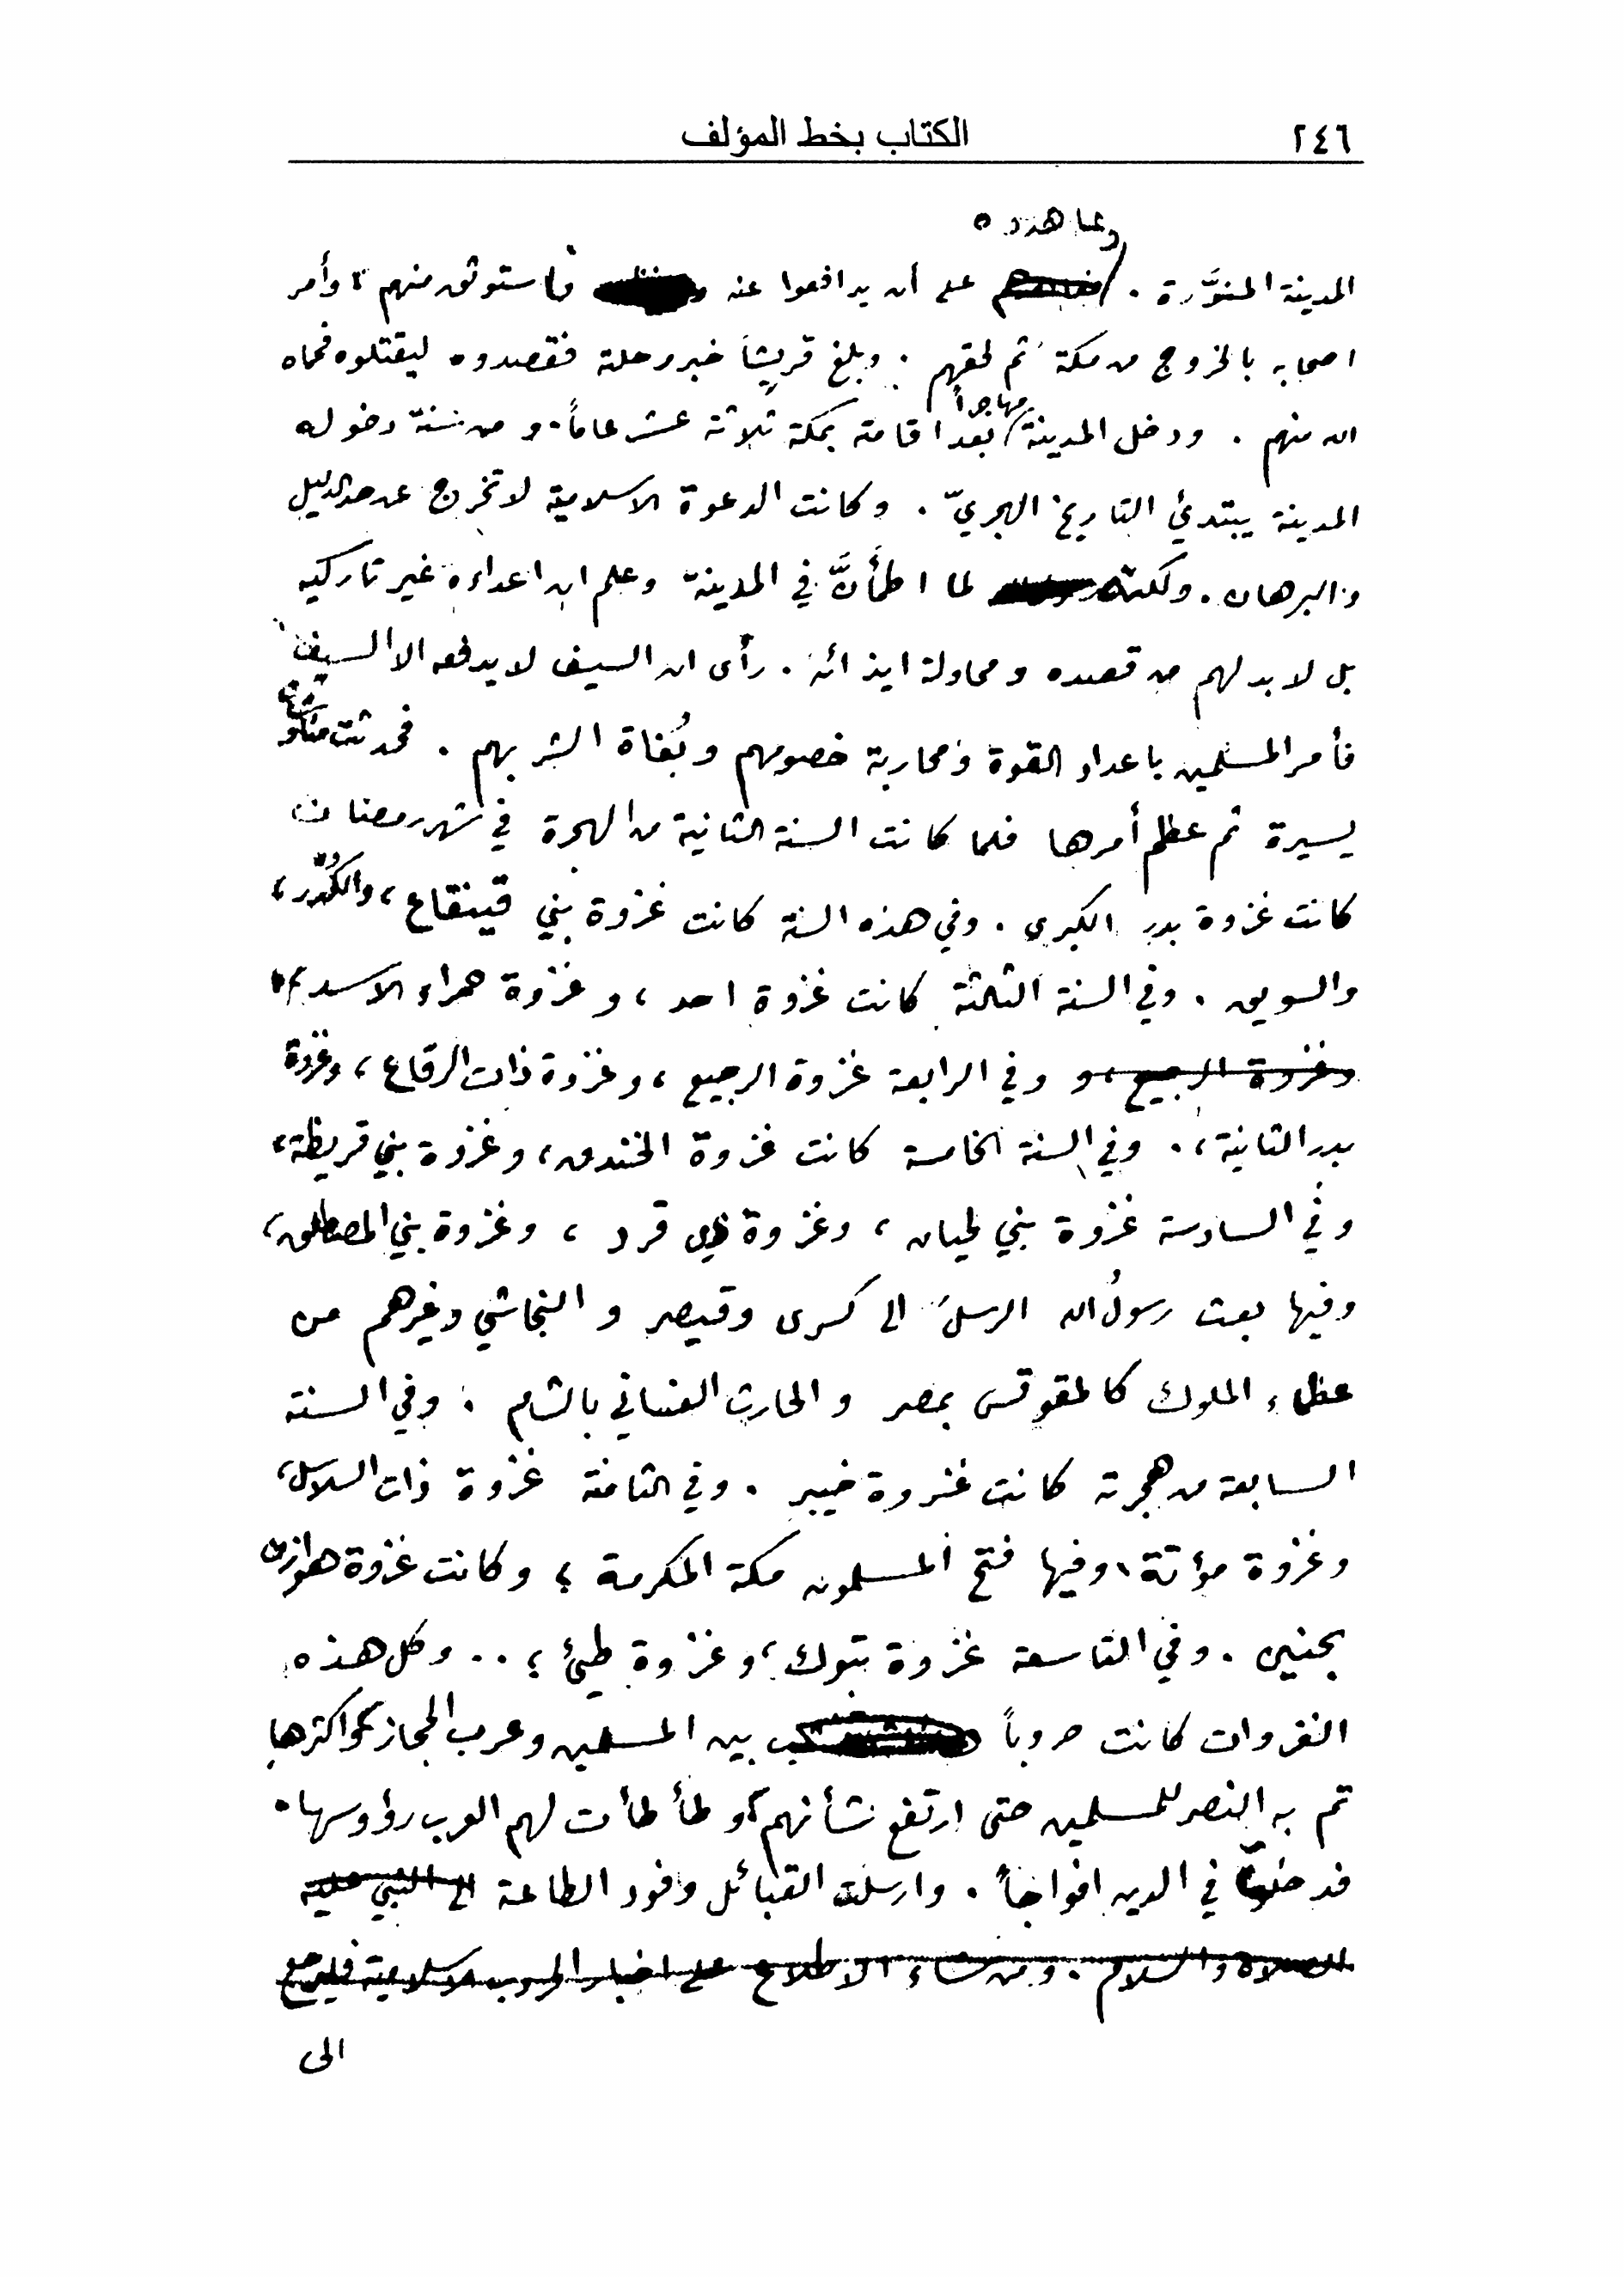 ٢٤٦ الكتاب بخط المؤلف
وعاهدوه
المدينة المنوَّرة . على أن يدافعوا عنه فاستوثق منهم ، وأمر
اصحابه بالخروج من مكة ثم لحقهم . وبلغ قريشاً خبر رحلته فقصدوه ليقتلوه فحماه
الله منهم . ودخل المدينة مهاجراً بعد اقامته بمكة ثلاثة عشر عاماً . ومن سنة دخوله
المدينة يبتدئ التاريخ الهجريّ . وكانت الدعوة الاسلامية لا تخرج عن حد الدليل
والبرهان . ولكنه لما اطمأنَّ في المدينة وعلم ان اعداءه غير تاركيه
بل لا بد لهم من قصده ومحاولة ايذائه . رأى ان السيف لا يدفعه الا السيف
فأمر المسلمين باعداد القوة ومحاربة خصومهم وبُغاة الشر بهم . فحدثت
يسيرة ثم عظم أمرها فلما كانت السنة الثانية من الهجرة في شهر رمضان
كانت غزوة بدر الكبرى . وفي هذه السنة كانت غزوة بني قينقاع ، والكُدْر ،
والسويق . وفي السنة الثالثة كانت غزوة احد ، وغزوة حمراء الاسد ،
وغزوة الرجيع ، و وفي الرابعة غزوة الرجيع ، وغزوة ذات الرقاع ، وغزوة
بدر الثانية ، . وفي السنة الخامسة كانت غزوة الخندق ، وغزوة بني قريظة ،
وفي السادسة غزوة بني لحيان ، وغزوة ذي قرد ، وغزوة بني المصطلق ،
وفيها بعث رسولُ الله الرسلَ الى كسرى وقيصر والنجاشي وغيرهم من
عظماء الملوك كالمقوقس بمصر والحارث الغساني بالشام . وفي السنة
السابعة من هجرته كانت غزوة خيبر . وفي الثامنة غزوة ذات السلاسل ،
وغزوة مؤتة ، وفيها فتح المسلمون مكة المكرمة ؛ وكانت غزوة هوازن
بحنين . وفي التاسعة غزوة تبوك ، وغزوة طيئ ؛ . . وكل هذه
الغزوات كانت حروباً بين المسلمين وعرب الحجاز ، واكثرها
تم به النصر للمسلمين حتى ارتفع شأنهم ، وطأطأت لهم العرب رؤوسها .
فدخلوا في الدين افواجاً . وارسلت القبائل وفود الطاعة الى النبي عليه
الصلاة والسلام . ومن شاء الاطلاع على اخبار الحروب الاسلامية فليرجع
الى